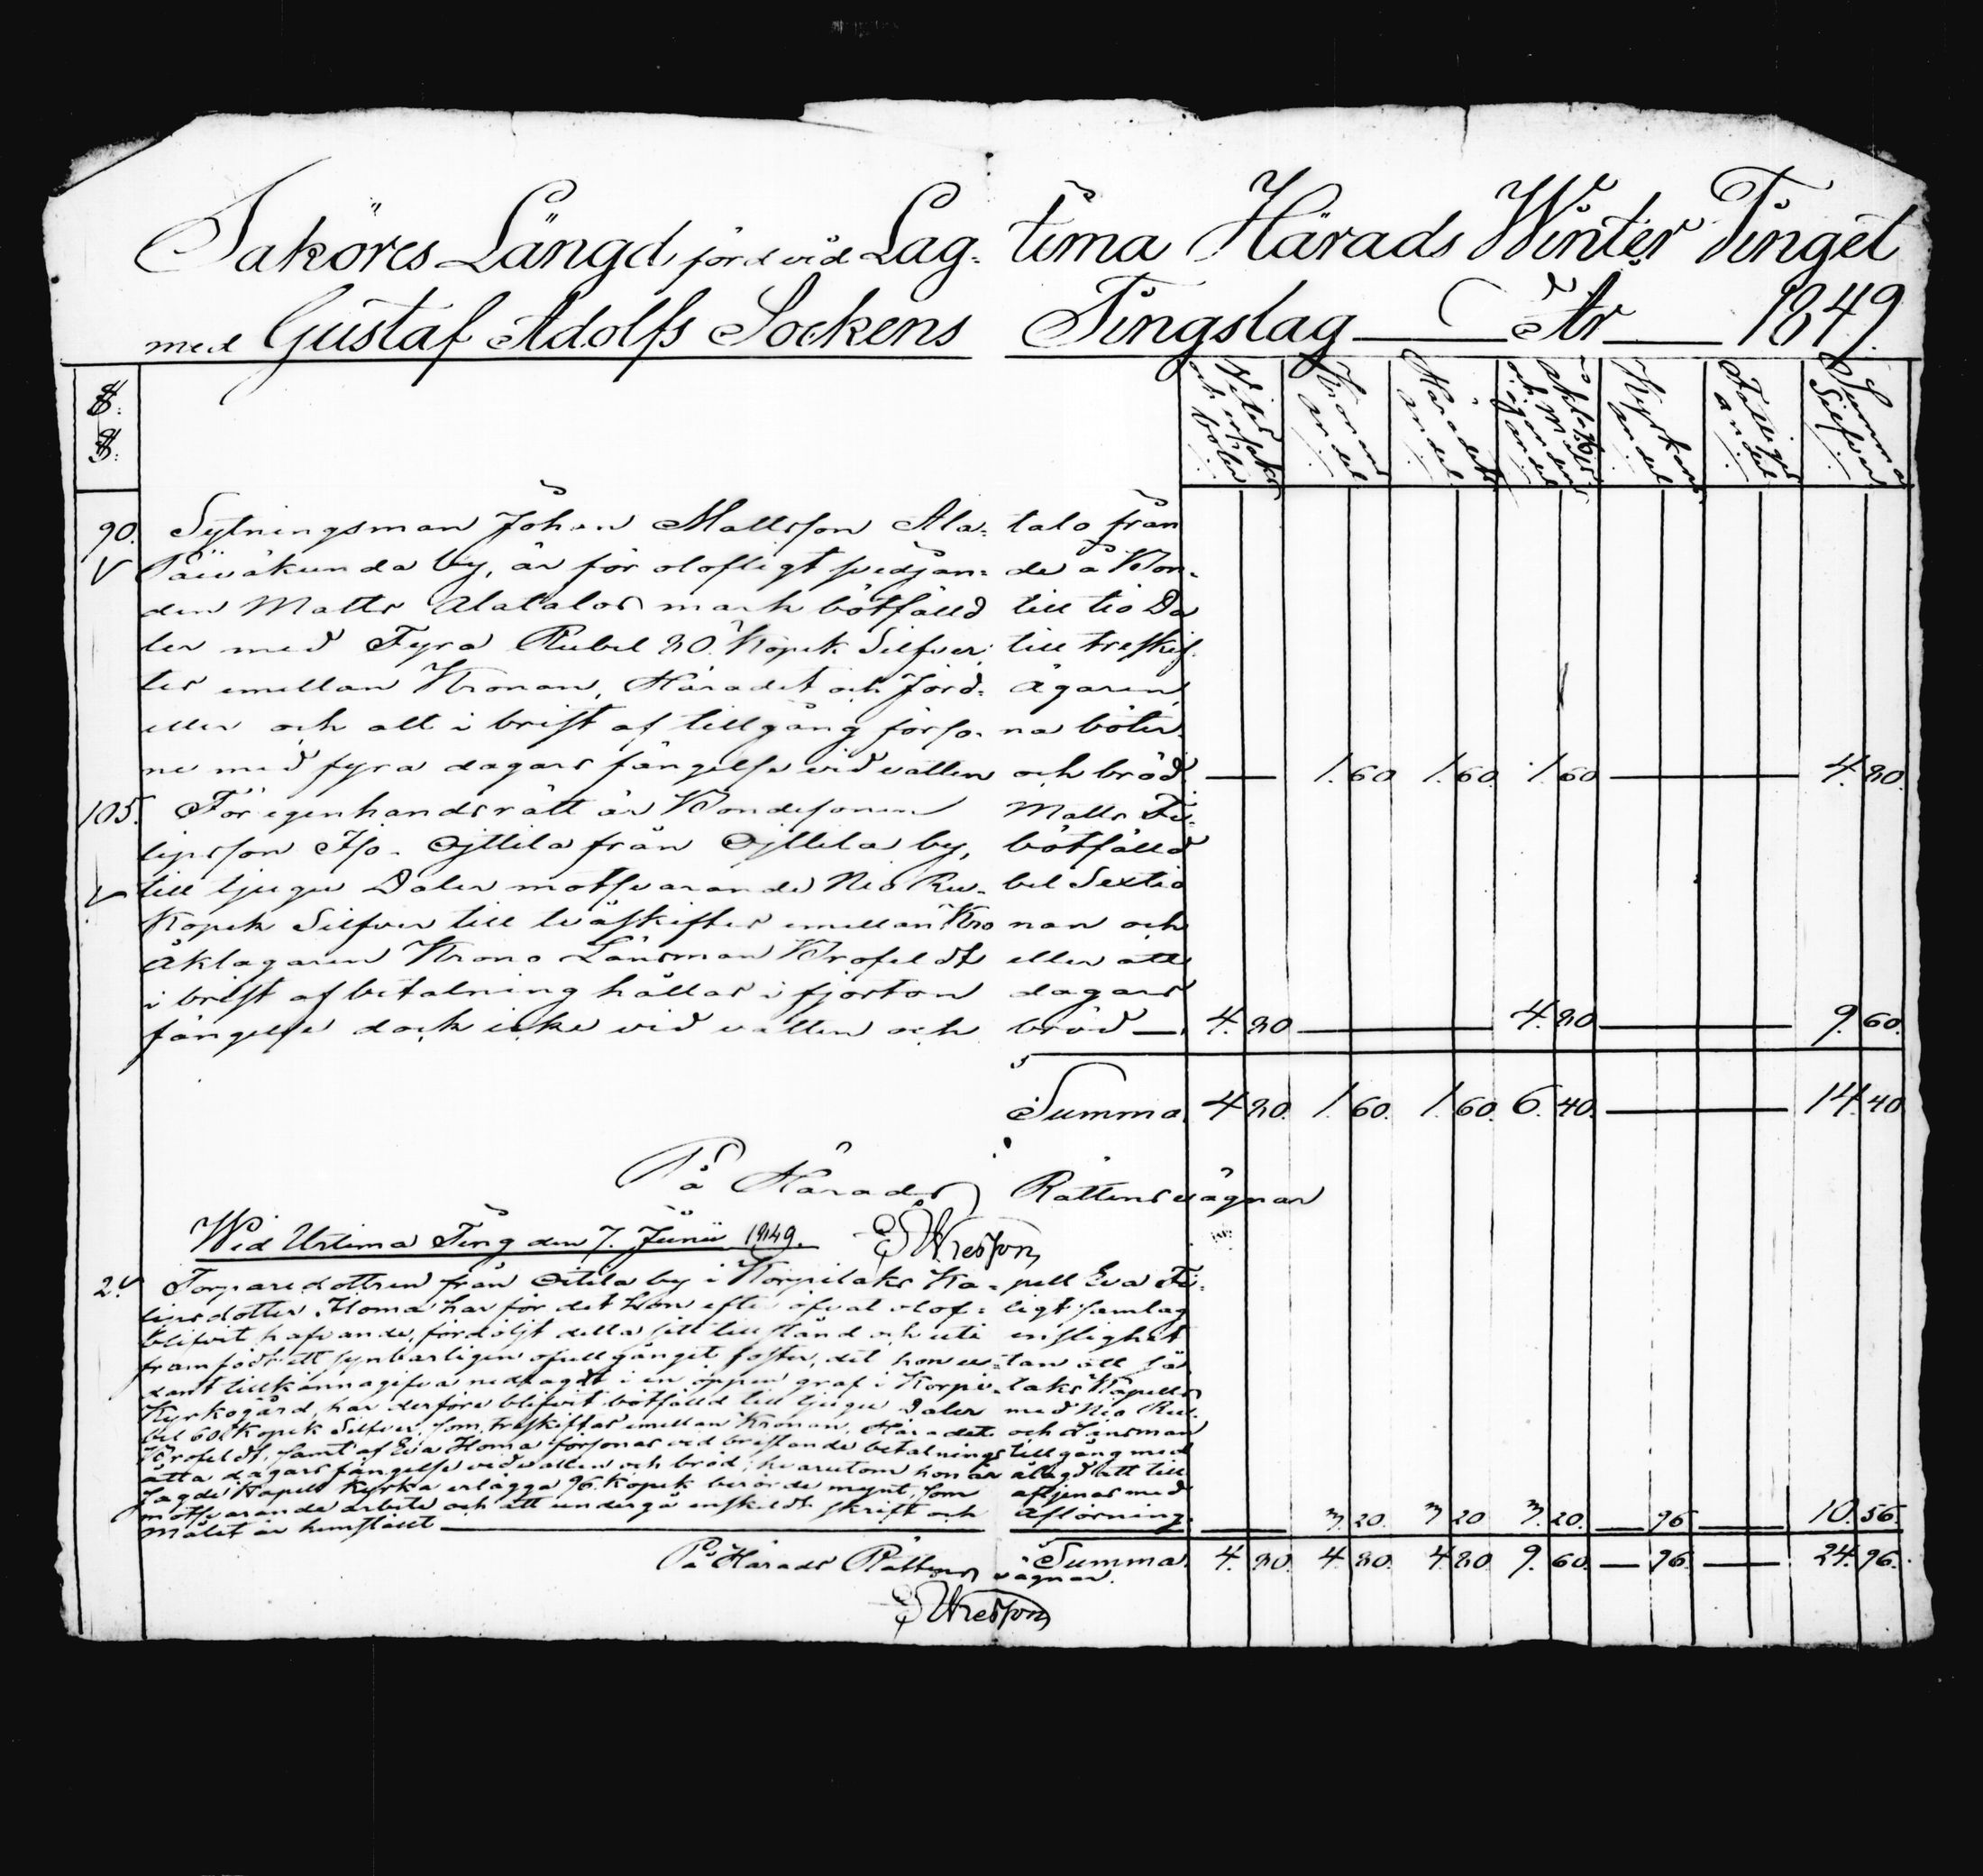 Saköres Längd förd vid Lag= tima Härads Winter Tinget
med Gustaf Adolfs Sockens Tingslag — År — 1849.
§. §.
Kronans andel
Häradets andel
Kyrkans andel
Fattiges andel
Summa Silfver
90. Sytningsman Johan Mattsson Ala= talo från
Päiväkunda by, är för olofligt svedjan= de å Bon=
den Matts Alatalos mark bötfälld till tio Da
ler med Fyra Rubel 80. Kopek Silfver, till treskif=
tes emellan Kronan, Häradet och Jord= ägaren,
eller och att i brist af tillgång förso= na böter=
ne med fyra dagars fängelse vid vatten och bröd. — 1. 60. 1. 60. 1. 60. — 4. 80.
105. För egenhandsrätt är Bondesonen Matts Fi=
lipsson Iso- Ojttila från Ojttila by, bötfälld
till tjugu Daler motsvarande Nio Ru= bel Sextio
Kopek Silfver till tvåskiftes emellan Kro nan och
Åklagaren Krono Länsman Brofeldt eller att
i brist af betalning hållas i fjorton dagars
fängelse dock icke vid vatten och bröd — 4. 80. — 4. 80. — 9. 60.
Summa 4. 80. 1. 60. 1. 60. 6. 40. — 14. 40
På Härads Rättens vägnar
Wid Urtima Ting den 7. Junii 1849.
2. Torparedottren från by i Korpilaks Ka= pell Eva Fi=
lipsdotter Homa har för det hon efter öfvat olof= ligt samlag
blifvit hafvande, fördöljt detta sitt tillstånd och uti enslighet
framfödt ett synbarligen ofullgånget foster, det hon u= tan att så
dant tillkännagifva nedlagdt i en öppen graf i Korpi= laks Kapells
Kyrkogård, har derföre blifvit bötfälld till tjugu Daler med Nio Ru=
bel 60. Kopek Silfver, som treskiftas emellan Kronan, Häradet och Länsman
Brofeldt, samt af Eva Homa försonas vid bristande betalnings tillgång med
åtta dagars fängelse vid vatten och bröd; hvarutom hon är ålagd att till
sagde Kapells Kyrka erlägga 96. Kopek berörde mynt, som aftjenas med
motsvarande arbete och att undergå enskildt skrift och Aflösning.
Målet är hemställt — 3. 20. 3. 20 3. 20. — 96 — 10. 56.
Summa. 4. 80. 4. 80. 4. 80 9. 60. — 96. — 24. 96.
På Härads Rättens vägnar.